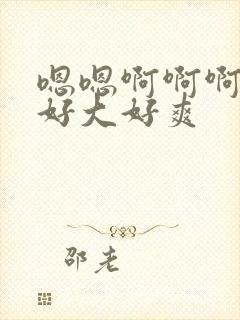 嗯嗯啊啊啊
好大好爽
邵老